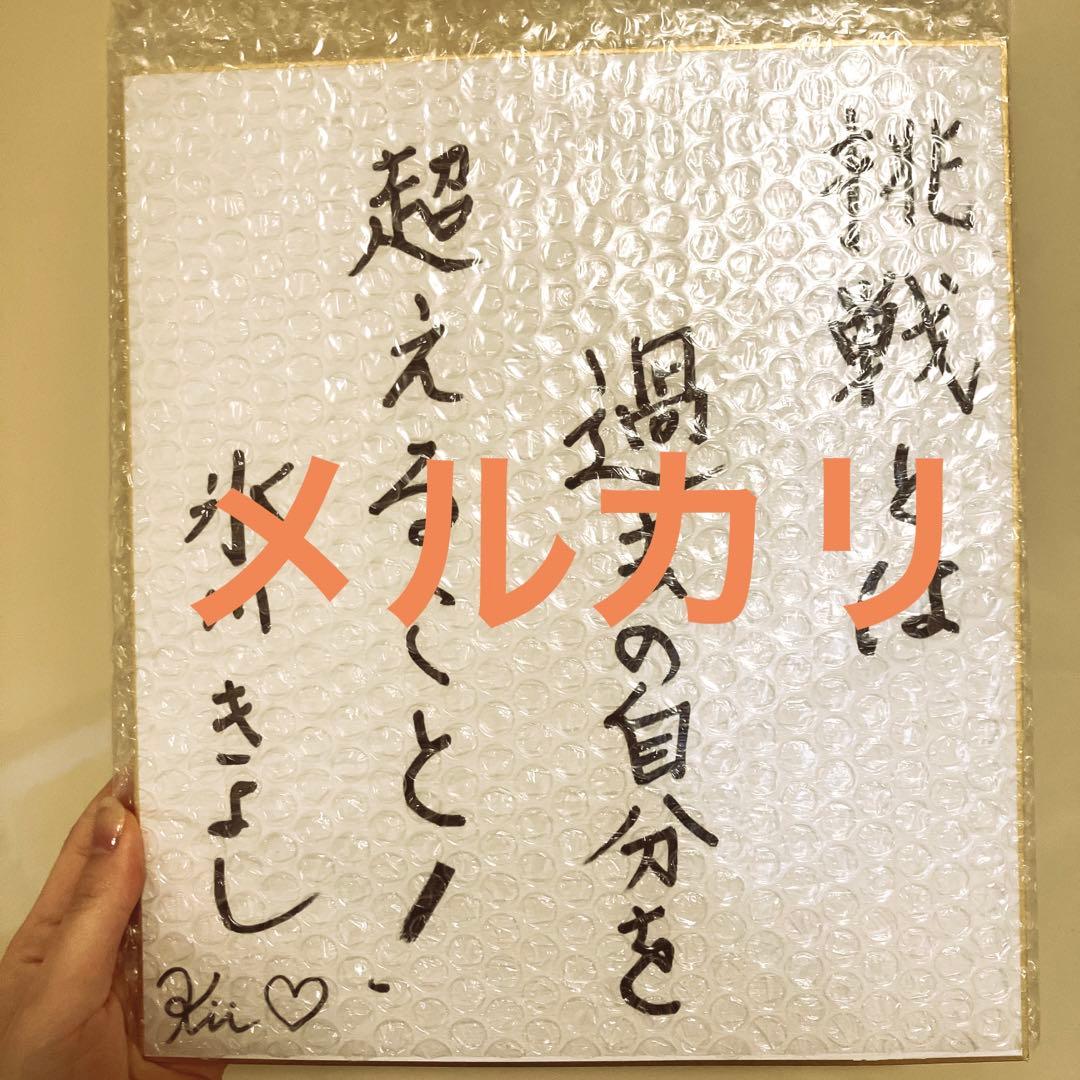 挑戦とは
過去の自分を
超えること!
氷川きよし
Kii♡
メルカリ